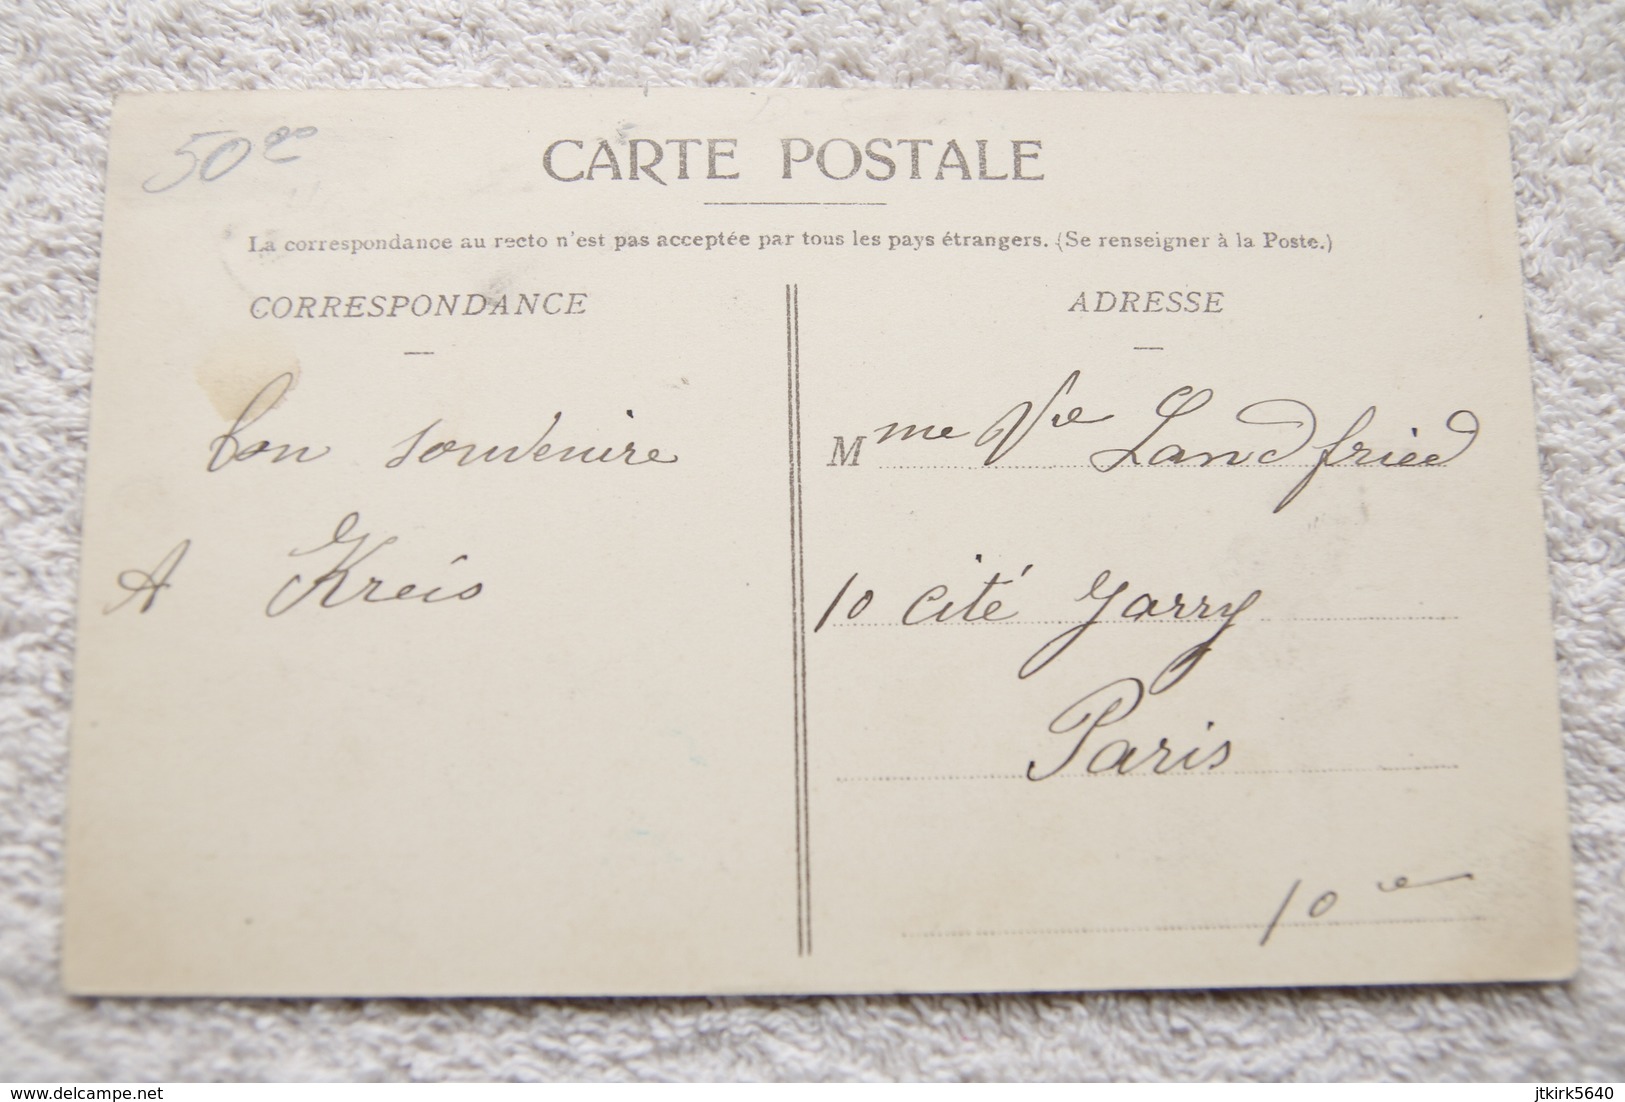 50 00
CARTE POSTALE
La correspondance au recto n'est pas acceptée par tous les pays étrangers. (Se renseigner à la Poste.)
CORRESPONDANCE
bon souvenire
A Kreis
ADRESSE
Mme Vve Landfried
10 cité Jarry
Paris
10e
delcampe.net
jtkirk5640